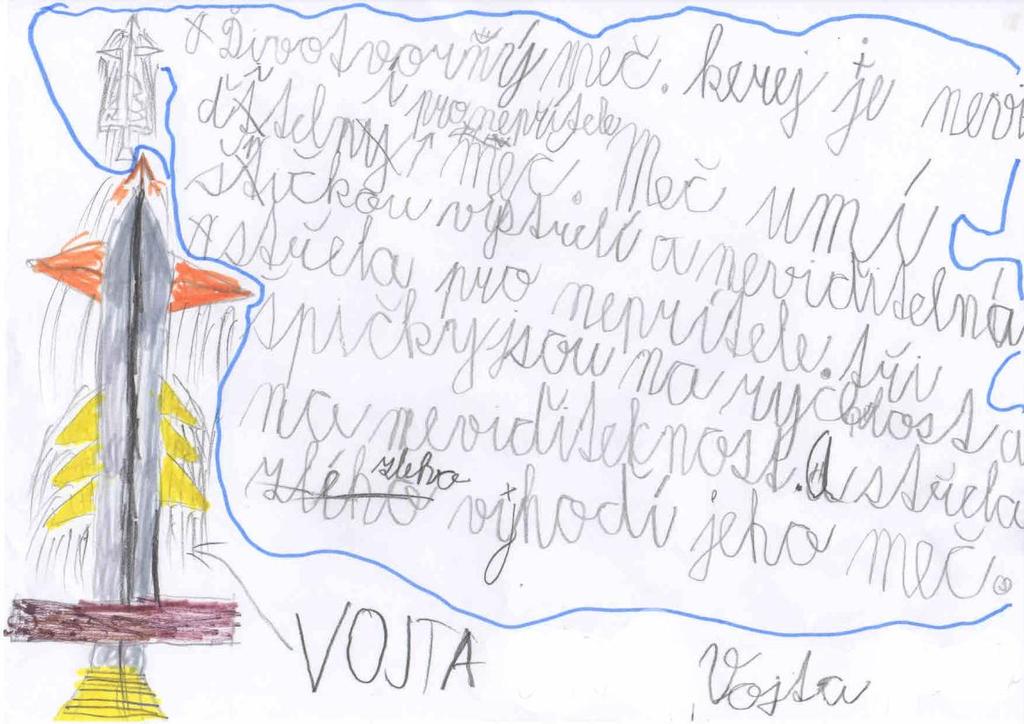 Životvorný meč. kerej je nevi
ditelny i pro nepřítele
meč. Meč umí
střičkou vystřelí a neviditelná
střela pro nepřítele. tři
spičky jsou na ryčlost a
na neviditeknost. A střela
zlého zleho výhodí jeho meč.
VOJTA
Vojta